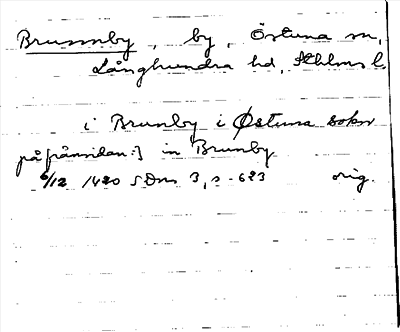 Brunnby, by, Östuna sn,
Långhundra hd, Sthlms l.
i Brunby i Østuna sokn
på frånsidan:] in Brunby
6/12 1420 SDns 3, s. 623 orig.